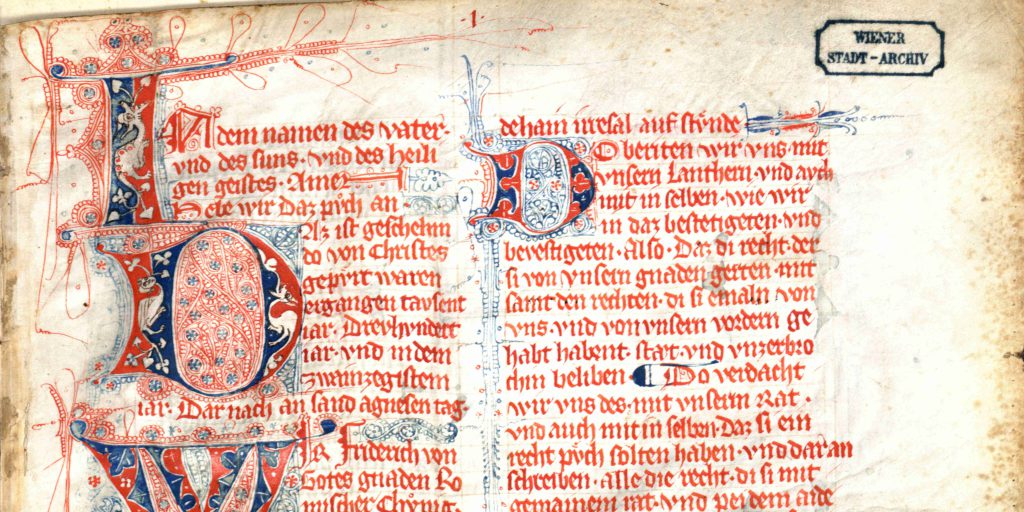 ·1·
WIENER
STADT-ARCHIV
In dem namen des vater·
vnd des suns· vnd des heili
gen geistes· Amen
hebe wir daz pùch an
Daz ist geschehn
do von Christes
gepùrt waren
ergangen tavsent
iar· Drevhyndert
iar· vnd in dem
zwainzegistem
iar· Dar nach an sand agnesen tag·
Wir Friderich von
Gotes gnaden Ro
mischer Chùnig·
dehain irresal auf stùnde
Do beriten wir vns mit
vnsern Lantherrn· vnd avch
mit in selben· wie wir
in daz bestetigeten· vnd
bevestigeten· Also· Daz di recht· der
si von vnsern gnaden gerten· mit
samt den rechten· di si emaln· von
vns· vnd von vnsern vordern ge
habt habent· stæt· vnd vnzerbro
chen beliben Do verdacht
wir vns des· mit vnserm Rat·
vnd auch mit in selben· Daz si ein
recht pùch solten haben· vnd dar an
schreiben· alle die recht· di si mit
gemainem rat· vnd pei dem aide